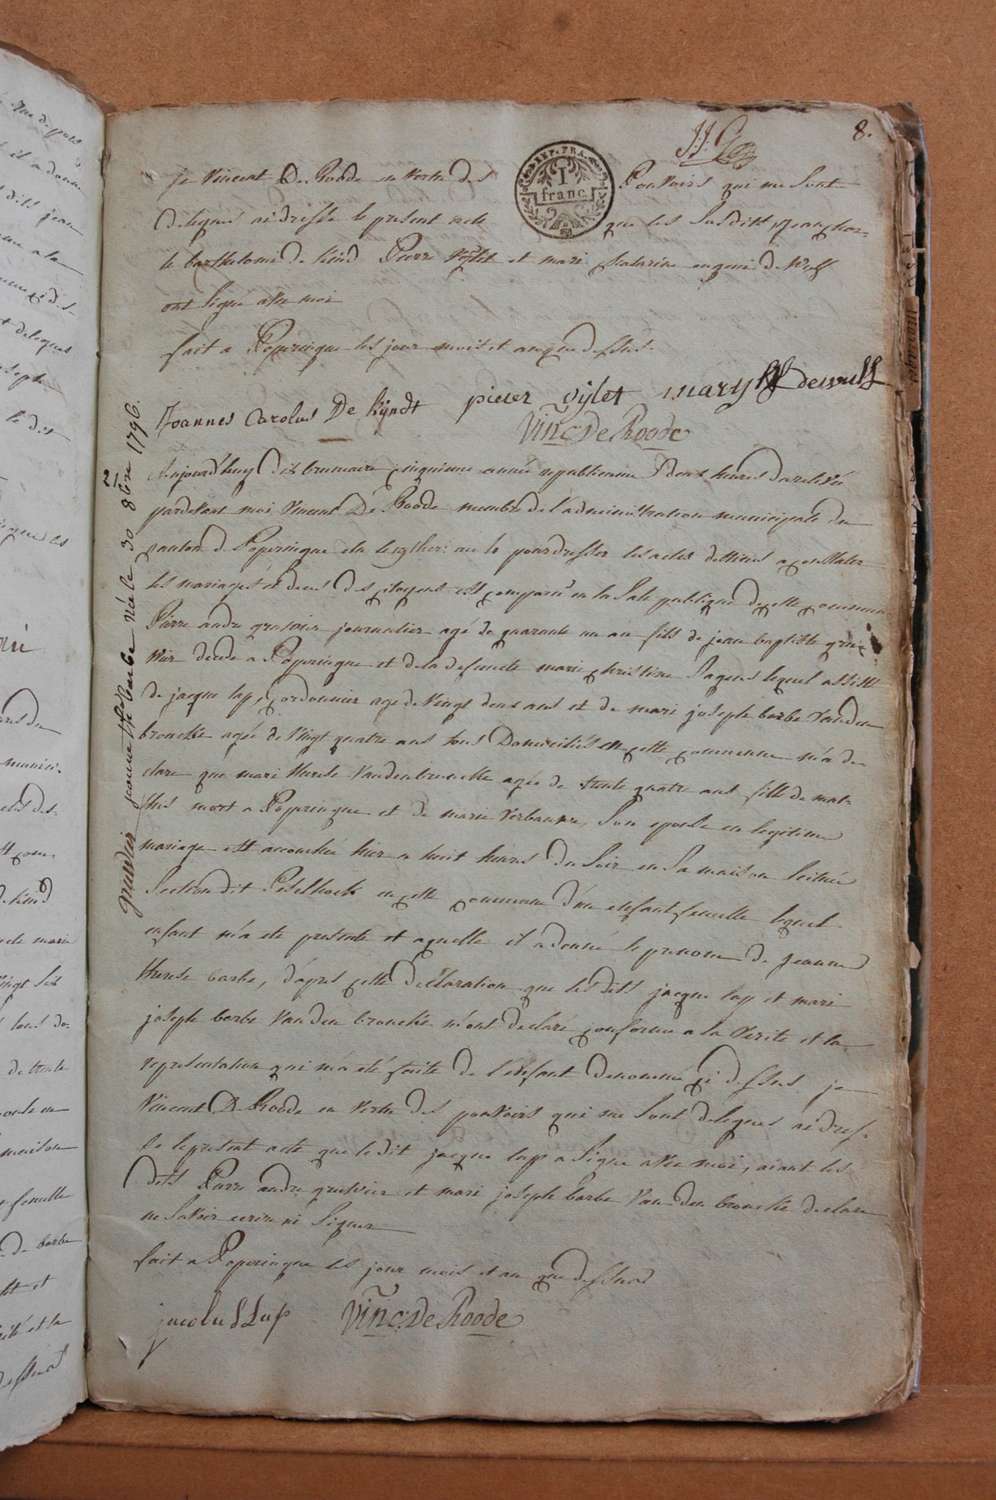 8.
je Vincent De Roode en vertu des pouvoirs qui me sont
delegués ai dressé le present acte que les susdits jean char-
le barthelomé de kind Pierre vijlet et mari de Wulf
ont signé avec moi
fait a Poperingue les jour mois et an que dessus.
Joannes Carolus De Kijndt pieter vijlet marij dewulf
Vinc. De Roode
21.
Aujourd'huy dix brumaire cinquieme année republicaine a deux heures de relevée
pardevant moi Vincent De Roode membre de l'administration municipale du
canton de Poperingue elu le pour dresser les actes destinés a constater
les mariages et deces des citoyens est comparu en la sale publique de cette commune
Pierre andre gruwier journalier agé de quarante un an fils de jean baptiste gru-
wier decedé a Poperingue et de la defuncte mari christine Pagnes lequel assisté
de jacque lap, cordonnier agé de vingt deux ans et de mari joseph barbe Vanden
broucke agée de vingt quatre ans tous domiciliés en cette commune m'a de-
claré que mari therese Vandenbroucke agée de trente quatre ans fille de mat-
this mort a Poperingue et de marie verbauwe, son epouse en legitime
mariage est accouchée hier a huit heures du soir en sa maison scituée
section dit Peselhoek en cette commune d'un enfant femelle lequel
enfant m'a été presenté et auquelle il a donné le prenom de jeanne
therese barbe, d'après cette declaration que les dits jacque lap et mari
joseph barbe Vanden broucke m'ont declaré conforme a la verité et la
representation qui m'a été faite de l'enfant denommé ci dessus je
Vincent De Roode en vertu des pouvoirs qui me sont delegués ai dres-
sé le present acte que le dit jacque lap a signé avec moi, aiant les
dits Pierre andre gruwier et mari joseph barbe Van den broucke declaré
ne savoir ecrire ni signer
fait a Poperingue les jour mois et an que dessus
jacobus Lap Vinc. De Roode
gruwier jeanne th. barbe née le 30 8bre 1796.
I franc